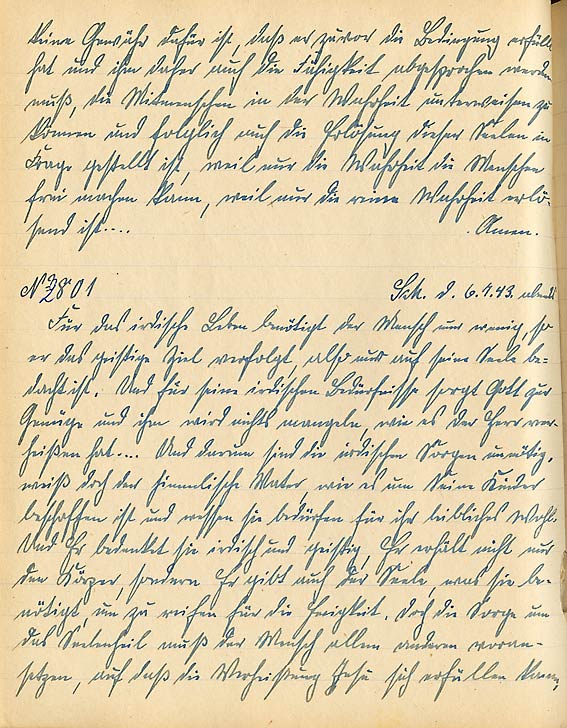 keine Gewähr dafür ist, daß er zuvor die Bedingung erfüllt
hat und ihm daher auch die Fähigkeit abgesprochen werden
muß, die Mitmenschen in der Wahrheit unterweisen zu
können und folglich auch die Erlösung dieser Seelen in
Frage gestellt ist, weil nur die Wahrheit die Menschen
frei machen kann, weil nur die reine Wahrheit erlö-
send ist.... Amen.
No 2801 d. 6.7.43. abends
Für das irdische Leben benötigt der Mensch nur wenig, so
er das geistige Ziel verfolgt, also nur auf seine Seele be-
dacht ist. Und für seine irdischen Bedürfnisse sorgt Gott zur
Genüge und ihm wird nichts mangeln, wie es der Herr ver-
heißen hat.... Und darum sind die irdischen Sorgen unnötig,
weiß doch der himmlische Vater wie es um Seine Kinder
beschaffen ist und wessen sie bedürfen für ihr leibliches Wohl.
Und Er bedenket sie irdisch und geistig, Er erhält nicht nur
den Körper, sondern Er gibt auch der Seele, was sie be-
nötigt, um zu reifen für die Ewigkeit. Doch die Sorge um
das Seelenheil muß der Mensch allem anderen voran-
setzen, auf daß die Verheißung Jesu sich erfüllen kann,